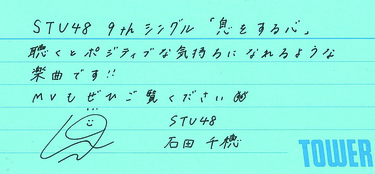 STU48 9thシングル「息をする心」
聴くとポジティブな気持ちになれるような
楽曲です!!
MVもぜひご覧ください
STU48
石田千穂
TOWER